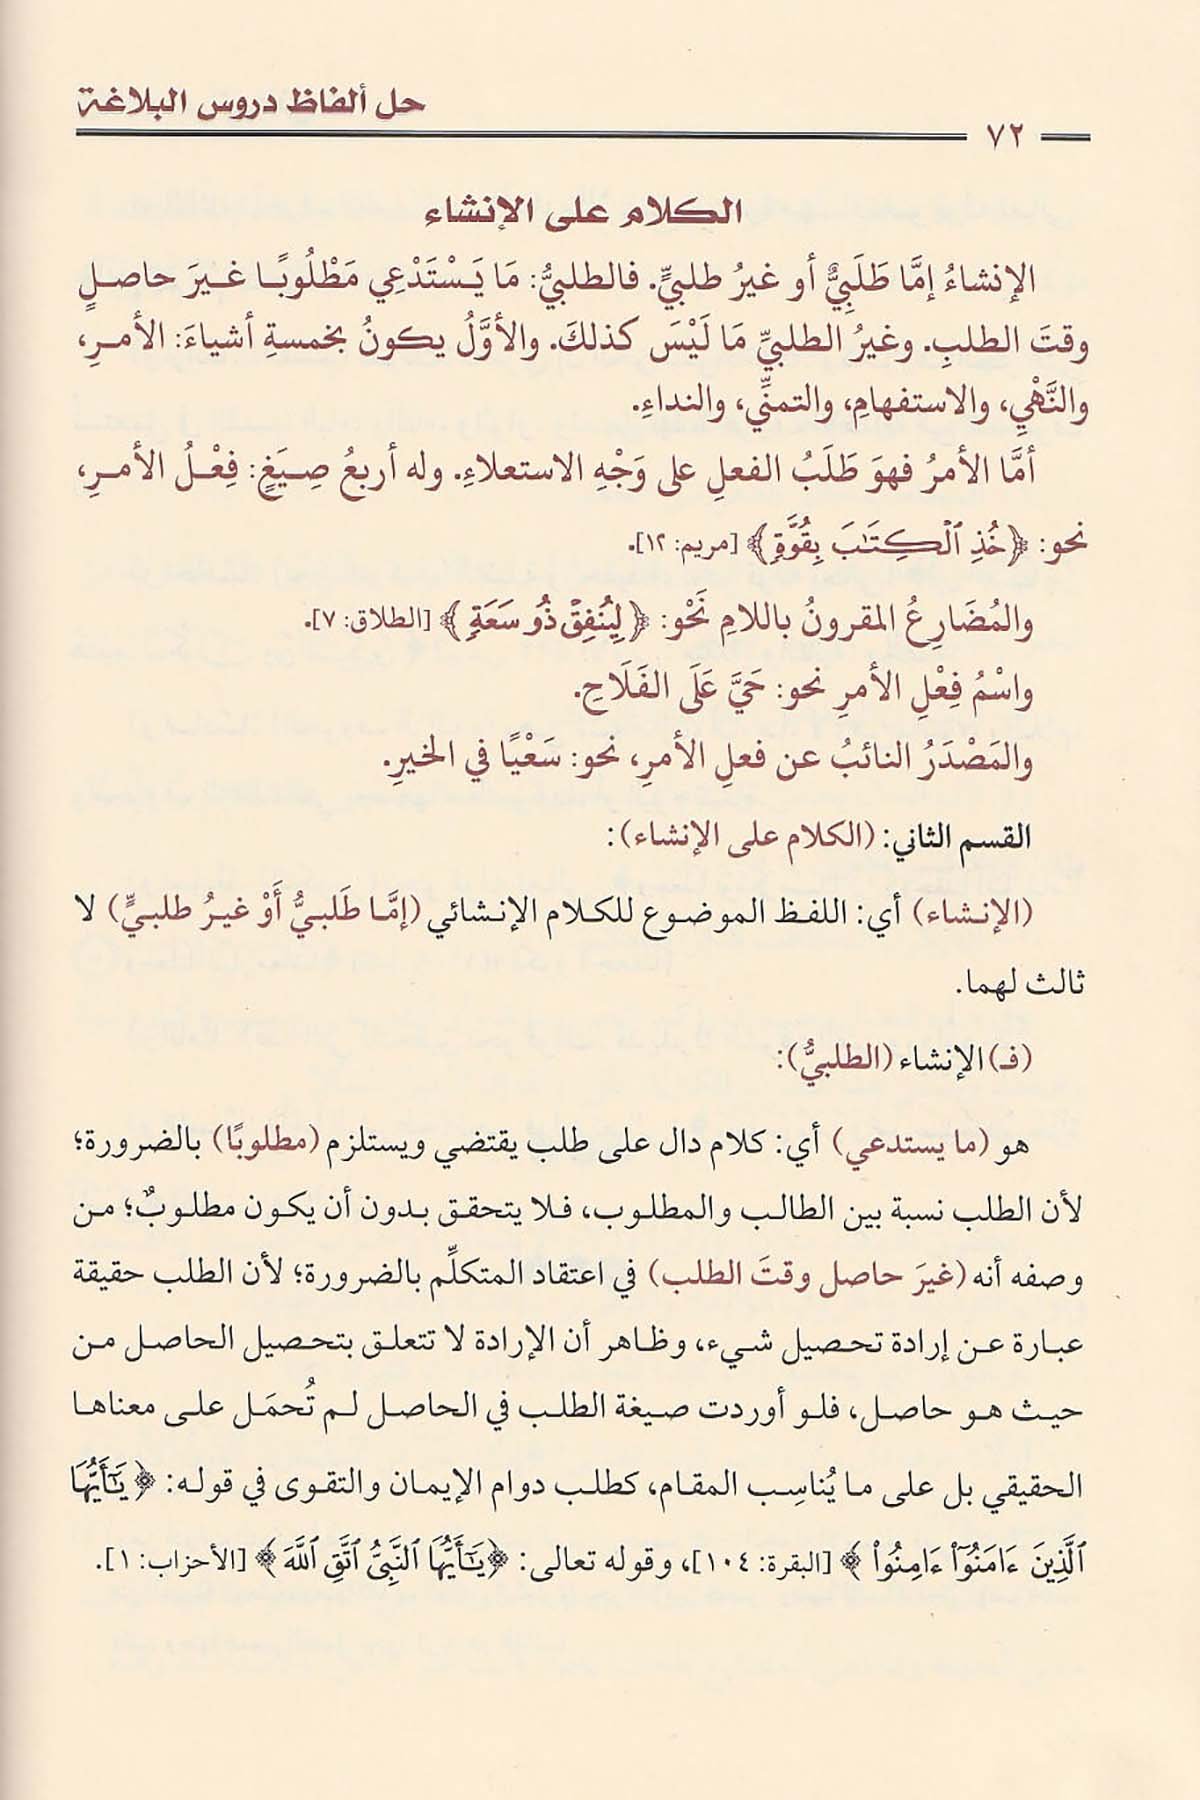 حل ألفاظ دروس البلاغة
٧٢
الكلام على الإنشاء
الإنشاءُ إمَّا طَلَبِيٌّ أو غيرُ طلبيٍّ. فالطلبيُّ: مَا يَسْتَدْعِي مَطْلُوبًا غيرَ حاصلٍ
وقتَ الطلبِ. وغيرُ الطلبيِّ مَا لَيْسَ كذلكَ. والأوَّلُ يكونُ بخمسةِ أشياءَ: الأمرِ،
والنَّهْيِ، والاستفهامِ، والتمنِّي، والنداءِ.
أمَّا الأمرُ فهوَ طَلَبُ الفعلِ على وَجْهِ الاستعلاءِ. وله أربعُ صِيَغٍ: فِعْلُ الأمرِ،
نحو: ﴿خُذِ ٱلْكِتَٰبَ بِقُوَّةٍ﴾ [مريم: ١٢].
والمُضَارِعُ المقرونُ باللامِ نَحْو: ﴿لِيُنفِقْ ذُو سَعَةٍ﴾ [الطلاق: ٧].
واسْمُ فِعْلِ الأمرِ نحو: حَيَّ عَلَى الفَلَاحِ.
والمَصْدَرُ النائبُ عن فعلِ الأمرِ، نحو: سَعْيًا في الخيرِ.
القسم الثاني: (الكلام على الإنشاء):
(الإنشاء) أي: اللفظ الموضوع للكلام الإنشائي (إمَّا طَلبيُّ أَوْ غيرُ طلبيٍّ) لا
ثالث لهما.
(فـ) الإنشاء (الطلبيُّ):
هو (ما يستدعي) أي: كلام دال على طلب يقتضي ويستلزم (مطلوبًا) بالضرورة؛
لأن الطلب نسبة بين الطالب والمطلوب، فلا يتحقق بدون أن يكون مطلوبٌ؛ من
وصفه أنه (غيرَ حاصل وقتَ الطلب) في اعتقاد المتكلِّم بالضرورة؛ لأن الطلب حقيقة
عبارة عن إرادة تحصيل شيء، وظاهر أن الإرادة لا تتعلق بتحصيل الحاصل من
حيث هو حاصل، فلو أوردت صيغة الطلب في الحاصل لم تُحمَل على معناها
الحقيقي بل على ما يُناسِب المقام، كطلب دوام الإيمان والتقوى في قوله: ﴿يَٰٓأَيُّهَا
ٱلَّذِينَ ءَامَنُوٓا۟ ءَامِنُوا۟﴾ [البقرة: ١٠٤]، وقوله تعالى: ﴿يَٰٓأَيُّهَا ٱلنَّبِىُّ ٱتَّقِ ٱللَّهَ﴾ [الأحزاب: ١].